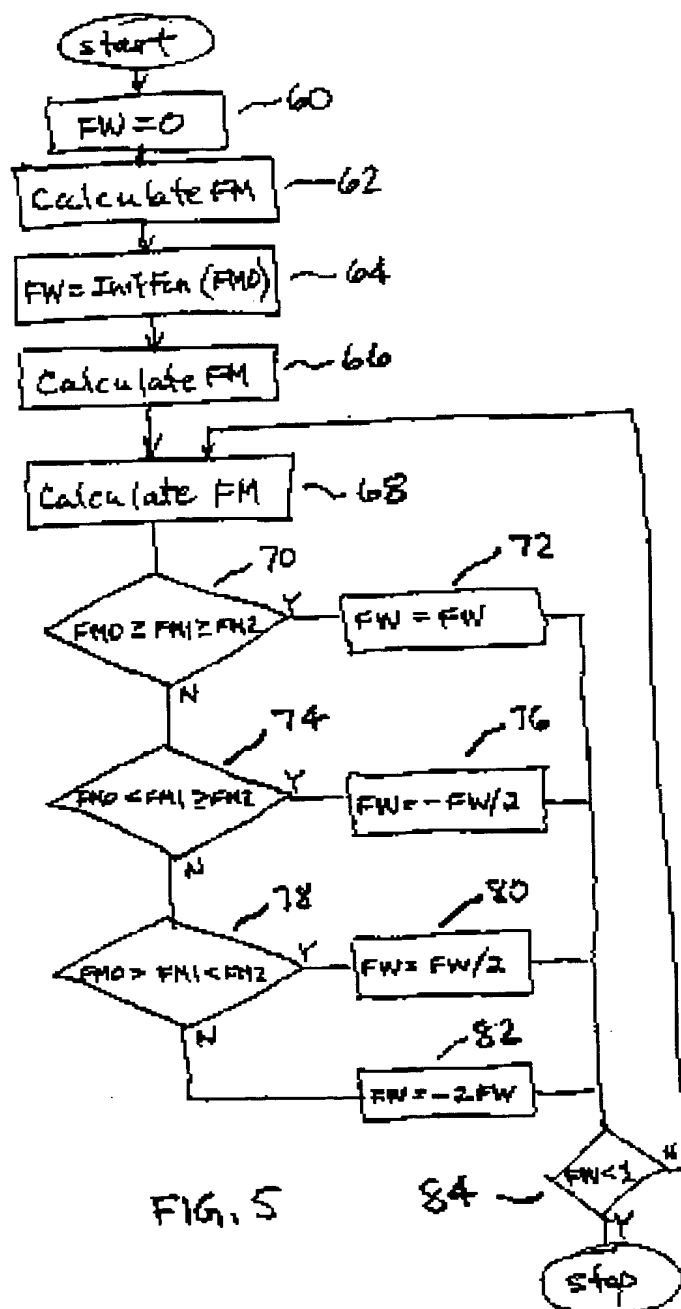 start
FW=0
60
Calculate FM
62
FW=InitFcn(FM0)
64
Calculate FM
66
Calculate FM
68
70
FM0≥FM1≥FM2
Y
72
FW=FW
N
74
FM0<FM1≥FM2
Y
76
FW=-FW/2
N
78
FM0>FM1<FM2
Y
80
FW=FW/2
N
82
FW=-2FW
FIG. 5
84
FW<1
N
Y
stop